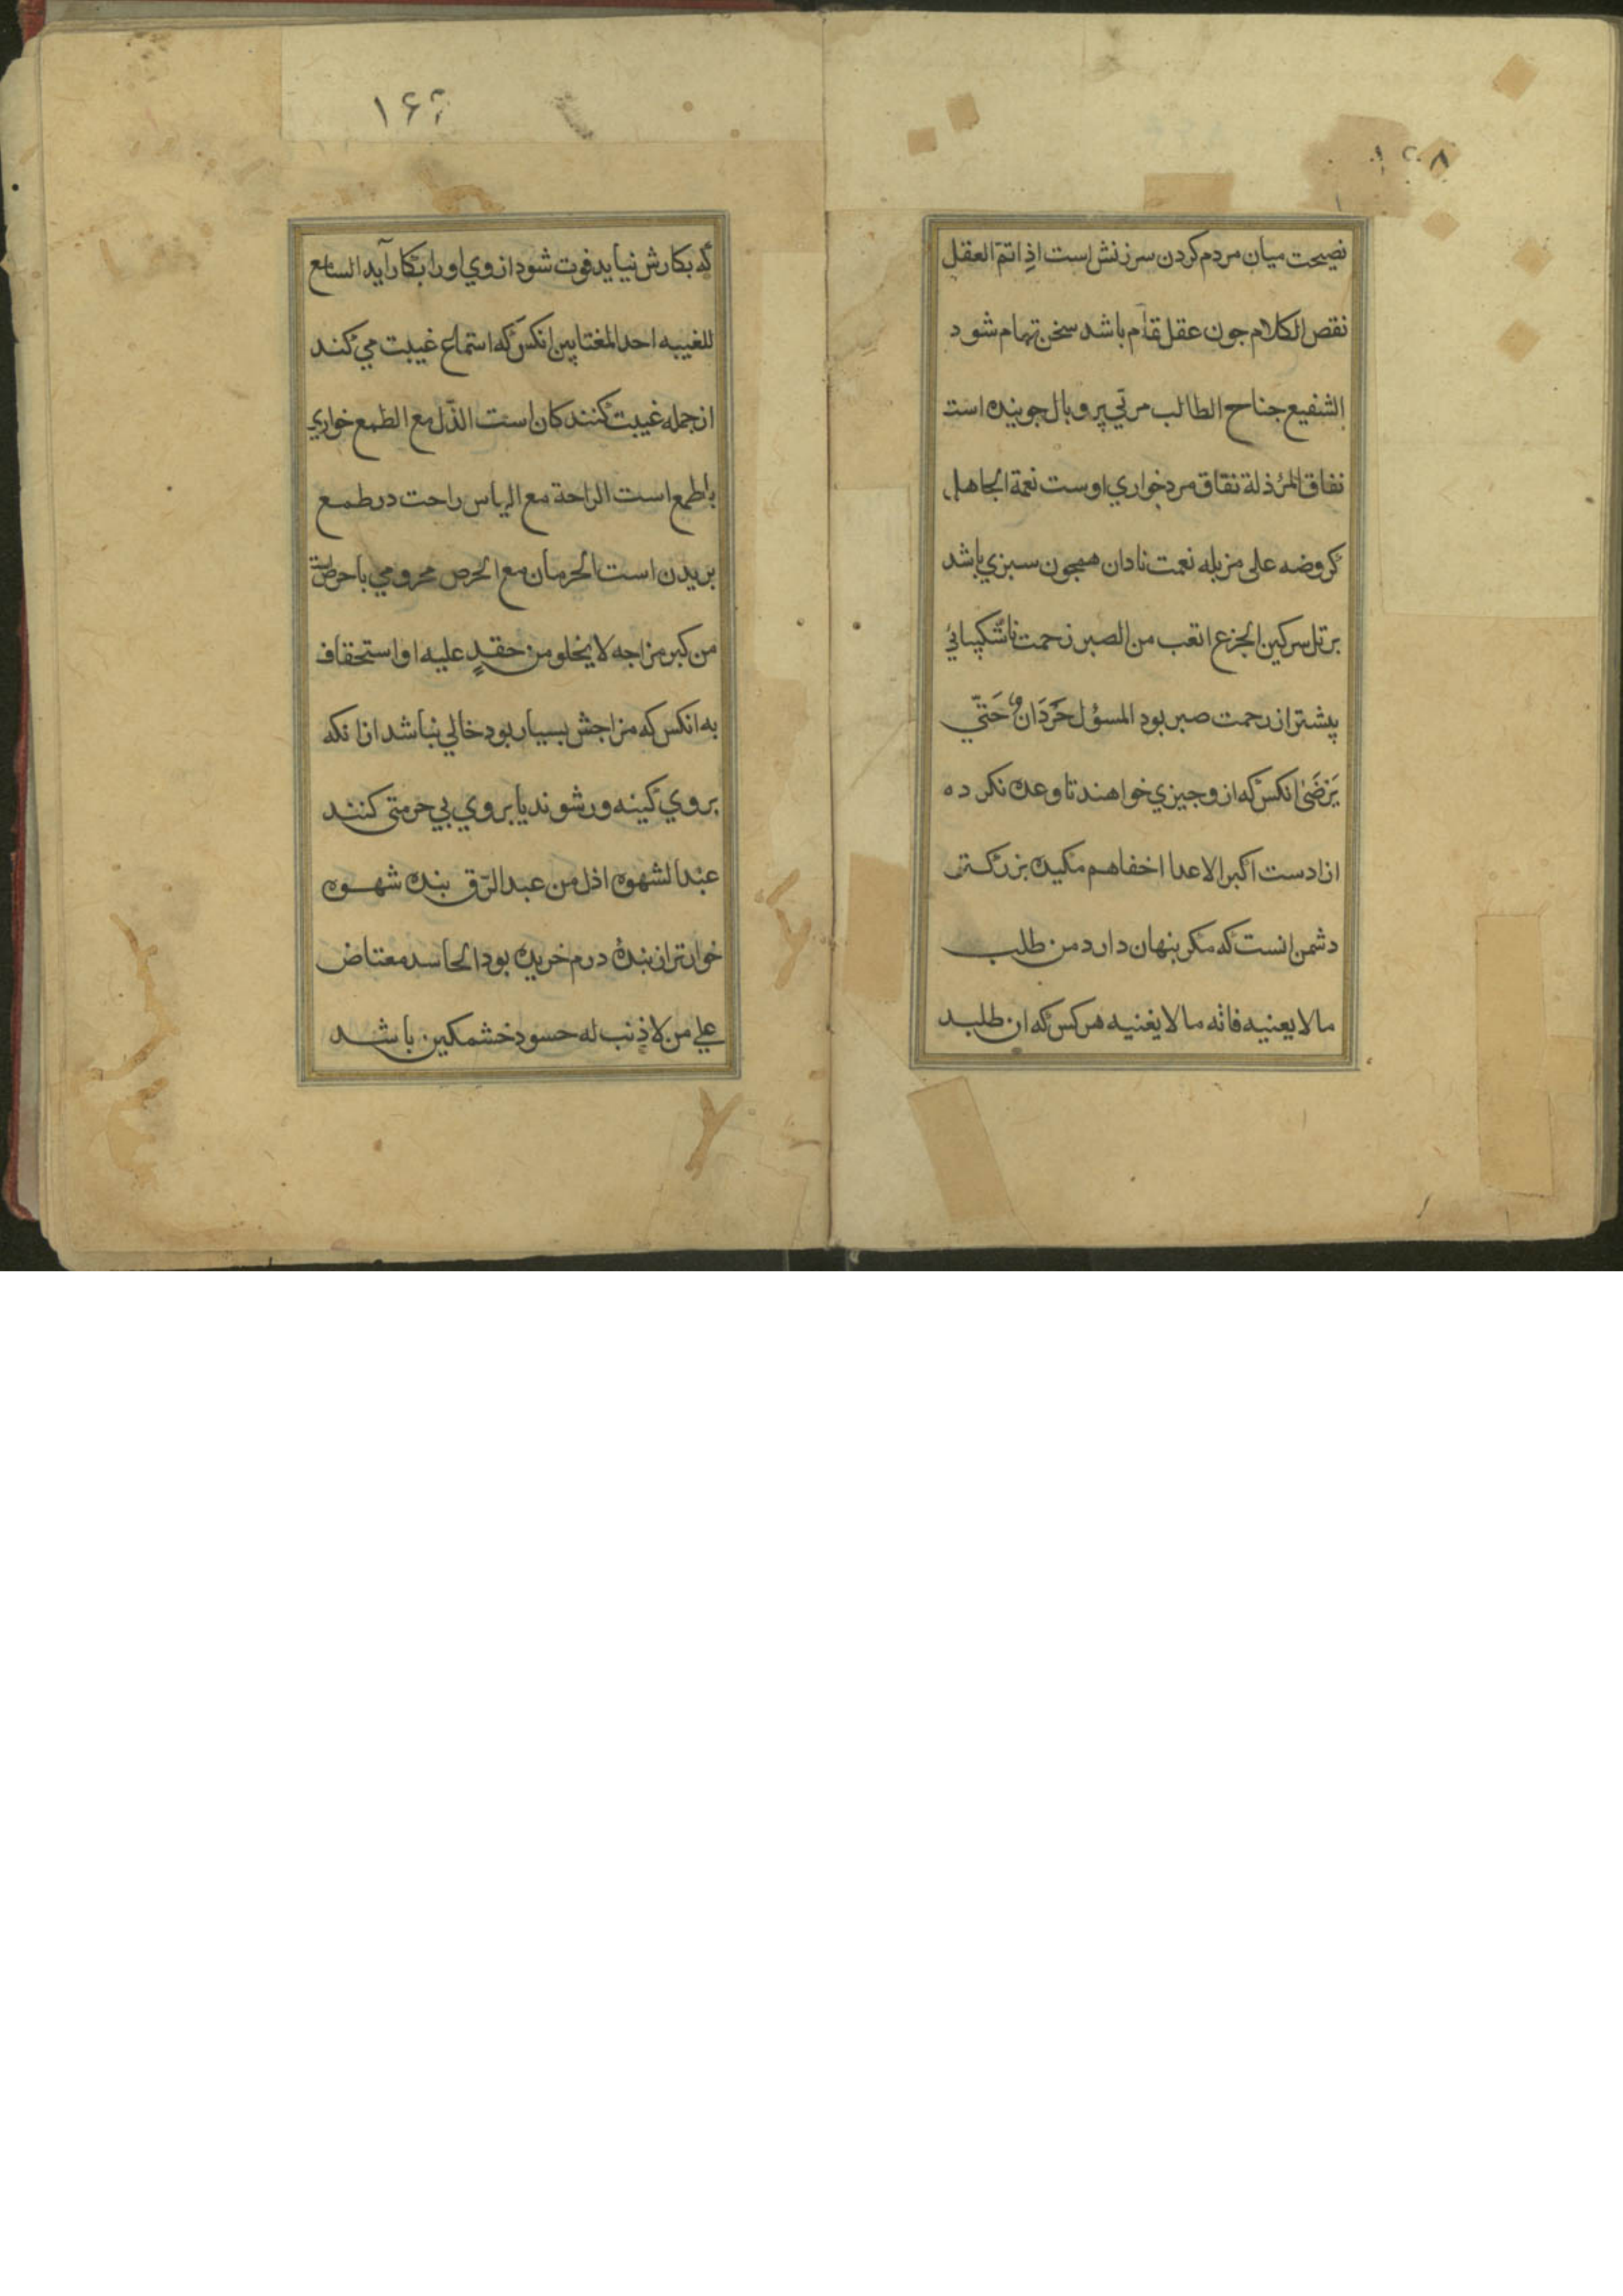 ۱۲۸
نصیحت میان مردم کردن سرزنش است اذِ اتمّ العقل
نقص الکلام جون عقل تمام باشد سخن تمام شود
الشفیع جناح الطالب مرتی پر و بال جوینده است
نفاق المرٔ ذلة نقاق مرد خواری اوست نعمة الجاهل
کروضه علی مزبله نعمت نادان همجون سبزی باشد
بر تل سرکین الجزع اتعب من الصبر زحمت ناشکیبائی
پیشتر از رحمت صبر بود المسؤل حَرَدَان و حَتّی
یَرْضَیٰ انکس که از و جیزی خواهند تا وعده نکرده
ازادست اکبر الاعدا اخفاهم مکیده بزرکتر
دشمن انست که مکر بنهان دارد من طلب
مالا یعنیه فاته مالا یغنیه هر کس که ان طلبد
۱۶۶
که بکارش نیاید فوت شود از وی او را بکار آید السامع
للغیبه احد المغتابین انکس که استماع غیبت می کند
از جمله غیبت کنند کان است الذّل مع الطمع خواری
باطمع است الراحة مع الیاس راحت در طمع
بریدن است الحرمان مع الحرص محرومی با حرص است
من کبر مزاجه لا یخلو من حقدٍ علیه او استحقاف
به انکس که مزاجش بسیار بود خالی نباشد از انکه
بر وی کینه ور شوند یا بر وی بی حرمتی کنند
عبد الشهوه اذل من عبد الرّق بنده شهوه
خوارتر از بندهٔ درم خریده بود الحاسد مغتاض
علی من لا ذنب له حسود خشمکین باشد